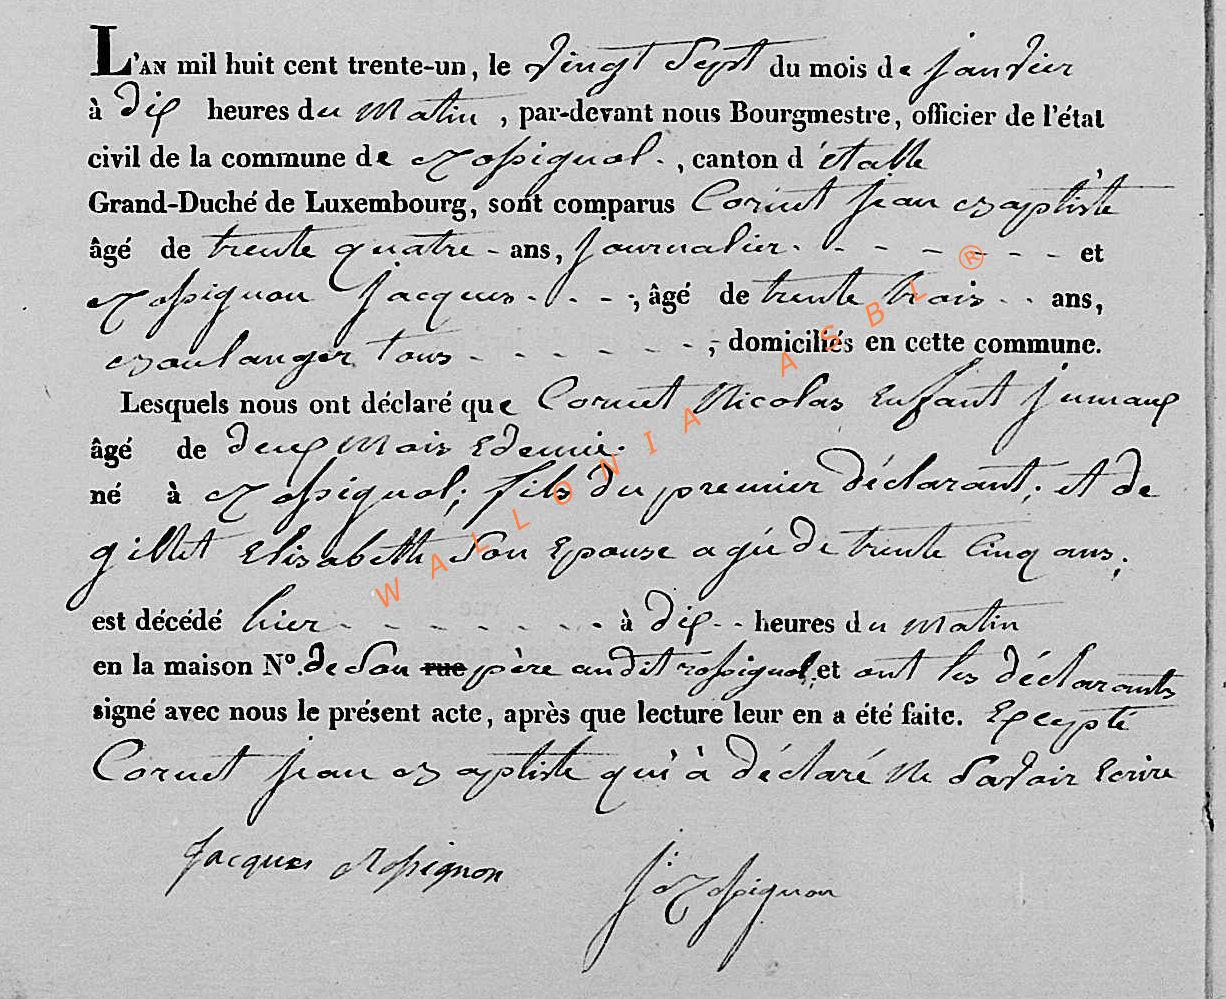 L'AN mil huit cent trente-un, le vingt Sept du mois de janvier
à dix heures du Matin, par-devant nous Bourgmestre, officier de l'état
civil de la commune de Rossignol., canton d'étalle
Grand-Duché de Luxembourg, sont comparus Cornet jean Baptiste
âgé de trente quatre - ans, journalier. - - - - - - et
Rossignon jacques - - - -; âgé de trente trois - - ans,
Boulanger tous - - - - - - -, domiciliés en cette commune.
Lesquels nous ont déclaré que Cornet Nicolas Enfant jumaux
âgé de deux Mois Edemie.
né à Rossignol; fils du premier déclarant; et de
gillet Elisabeth Son Epouse agée de trente Cinq ans;
est décédé hier - - - - - - - à dix - - heures du Matin
en la maison N°. de Son rue père audit rossignol; et ont les déclarants
signé avec nous le présent acte, après que lecture leur en a été faite. Excepté
Cornet jean Baptiste qui à déclaré Ne Savoir Ecrire
Jacques Rossignon J: Rossignon
WALLONIA ASBL ®